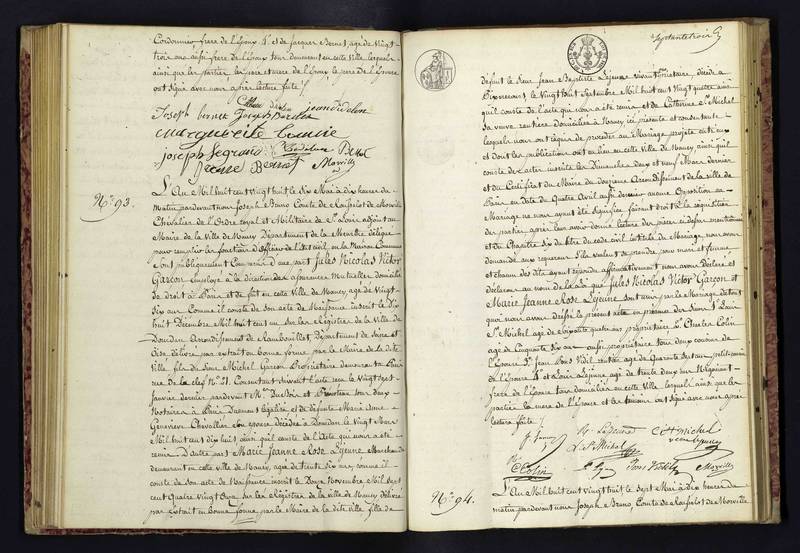 Cordonnier, frere de l'Epoux 4°. et de Jacques Bernet, agé de Vingt
trois ans aussi frere de l'Epoux tous demeurant en cette ville lesquels
ainsi que les parties les pere et mere de l'Epoux, le pere de l'Epouse
ont signé avec nous après lecture faite
Joseph bernet
marguerite
joseph Legrand
Bernet Morville
N°. 93.
L'An Mil huit cent vingt huit le Six Mai à dix heures du
matin pardevant nous Joseph Bruno Comte de de Morville
Chevalier de l'Ordre royal et Militaire de St. Louis adjoint au
Maire de la Ville de Nancy Département de la Meurthe délégué
pour remplir les fonctions d'Officier de l'état civil en la Maison Commune
sont publiquement Comparus d'une part Jules Nicolas Victor
Garçon Employé à la direction des assurances Mutuelles domicilié
de droit à Paris et de fait en cette Ville de Nancy, agé de Vingt-
six ans Comme il conste de son acte de Naissance inscrit le dix
huit Décembre Mil huit cent un sur les Régistres de la Ville de
Dourdan Arrondissement de Rambouillet, Département de Seine et
Oise délivré par extrait en bonne forme par le Maire de la dite
Ville, fils de Sieur Michel Garçon Propriétaire demeurant à Paris
rue de la Clef N°. 21. Consentant suivant l'acte reçu le Vingt sept
Janvier dernier pardevant Mes. et son Confrere
Notaires à Paris Dument légalisé et de défunte Marie Anne
Genevieve Chevallier son épouse décédée à Dourdan le Vingt Mars
Mil huit cent dix huit ainsi qu'il conste de l'Acte qui nous a été
remis D'autre part Marie Jeanne Rose Lejeune Marchande
demeurant en cette ville de Nancy, agée de trente six ans, comme il
conste de son acte de Naissance inscrit le Douze Novembre Mil sept
cent Quatre vingt Onze sur les Régistres de la ville de Nancy délivré
par extrait en bonne forme par le Maire de la dite ville fille de
Septante trois
défunt le Sieur Jean Baptiste Lejeune vivant Notaire décédé à
le Vingt huit Septembre Mil huit cent vingt quatre ainsi
qu'il conste de l'acte qui nous a été remis et de Catherine St. Michel
sa veuve rentiere domiciliée à Nancy ici présente et consentante
lesquels nous ont requis de procéder au Mariage projeté entr'eux
et dont les publications ont eu lieu en cette ville de Nancy ainsi qu'il
conste des actes inscrits les Dimanches deux et neuf Mars dernier
et du Certificat du Maire du douzieme Arrondissement de la ville de
Paris en date du Quatre Avril aussi dernier aucune Opposition au
Mariage ne nous ayant été signifiée faisant droit à la réquisition
des parties après leur avoir donné lecture des pieces ci dessus mentionnées
et du Chapitre Six du titre du code civil intitulé du Mariage, nous avons
demandé aux requérans s'ils veulent se prendre pour mari et femme
et chacun des dits ayant répondu affirmativement nous avons déclaré et
déclarons au nom de la Loi que Jules Nicolas Victor Garçon et
Marie Jeanne Rose Lejeune sont unis par le Mariage de tout
quoi nous avons dressé le présent acte en présence des Sieurs 1°. Louis
St. Michel agé de Soixante quatre ans propriétaire 2°. Charles Colin
agé de Cinquante six ans aussi propriétaire tous deux cousins de
l'Epouse 3°. Jean agé de Quarante huit ans
de l'Epouse 4°. et Louis Lejeune agé de trente deux ans
frere de l'Epouse tous domiciliés en cette Ville lesquels ainsi que les
parties la mere de l'Epouse et les témoins ont signé avec nous après
lecture faite
R. Lejeune C St michel
L. St Michel veuve Lejeune
C Colin Morville
N°. 94.
L'An Mil huit cent vingt huit le Sept Mai à dix heures du
matin pardevant nous Joseph Bruno Comte de de Morville